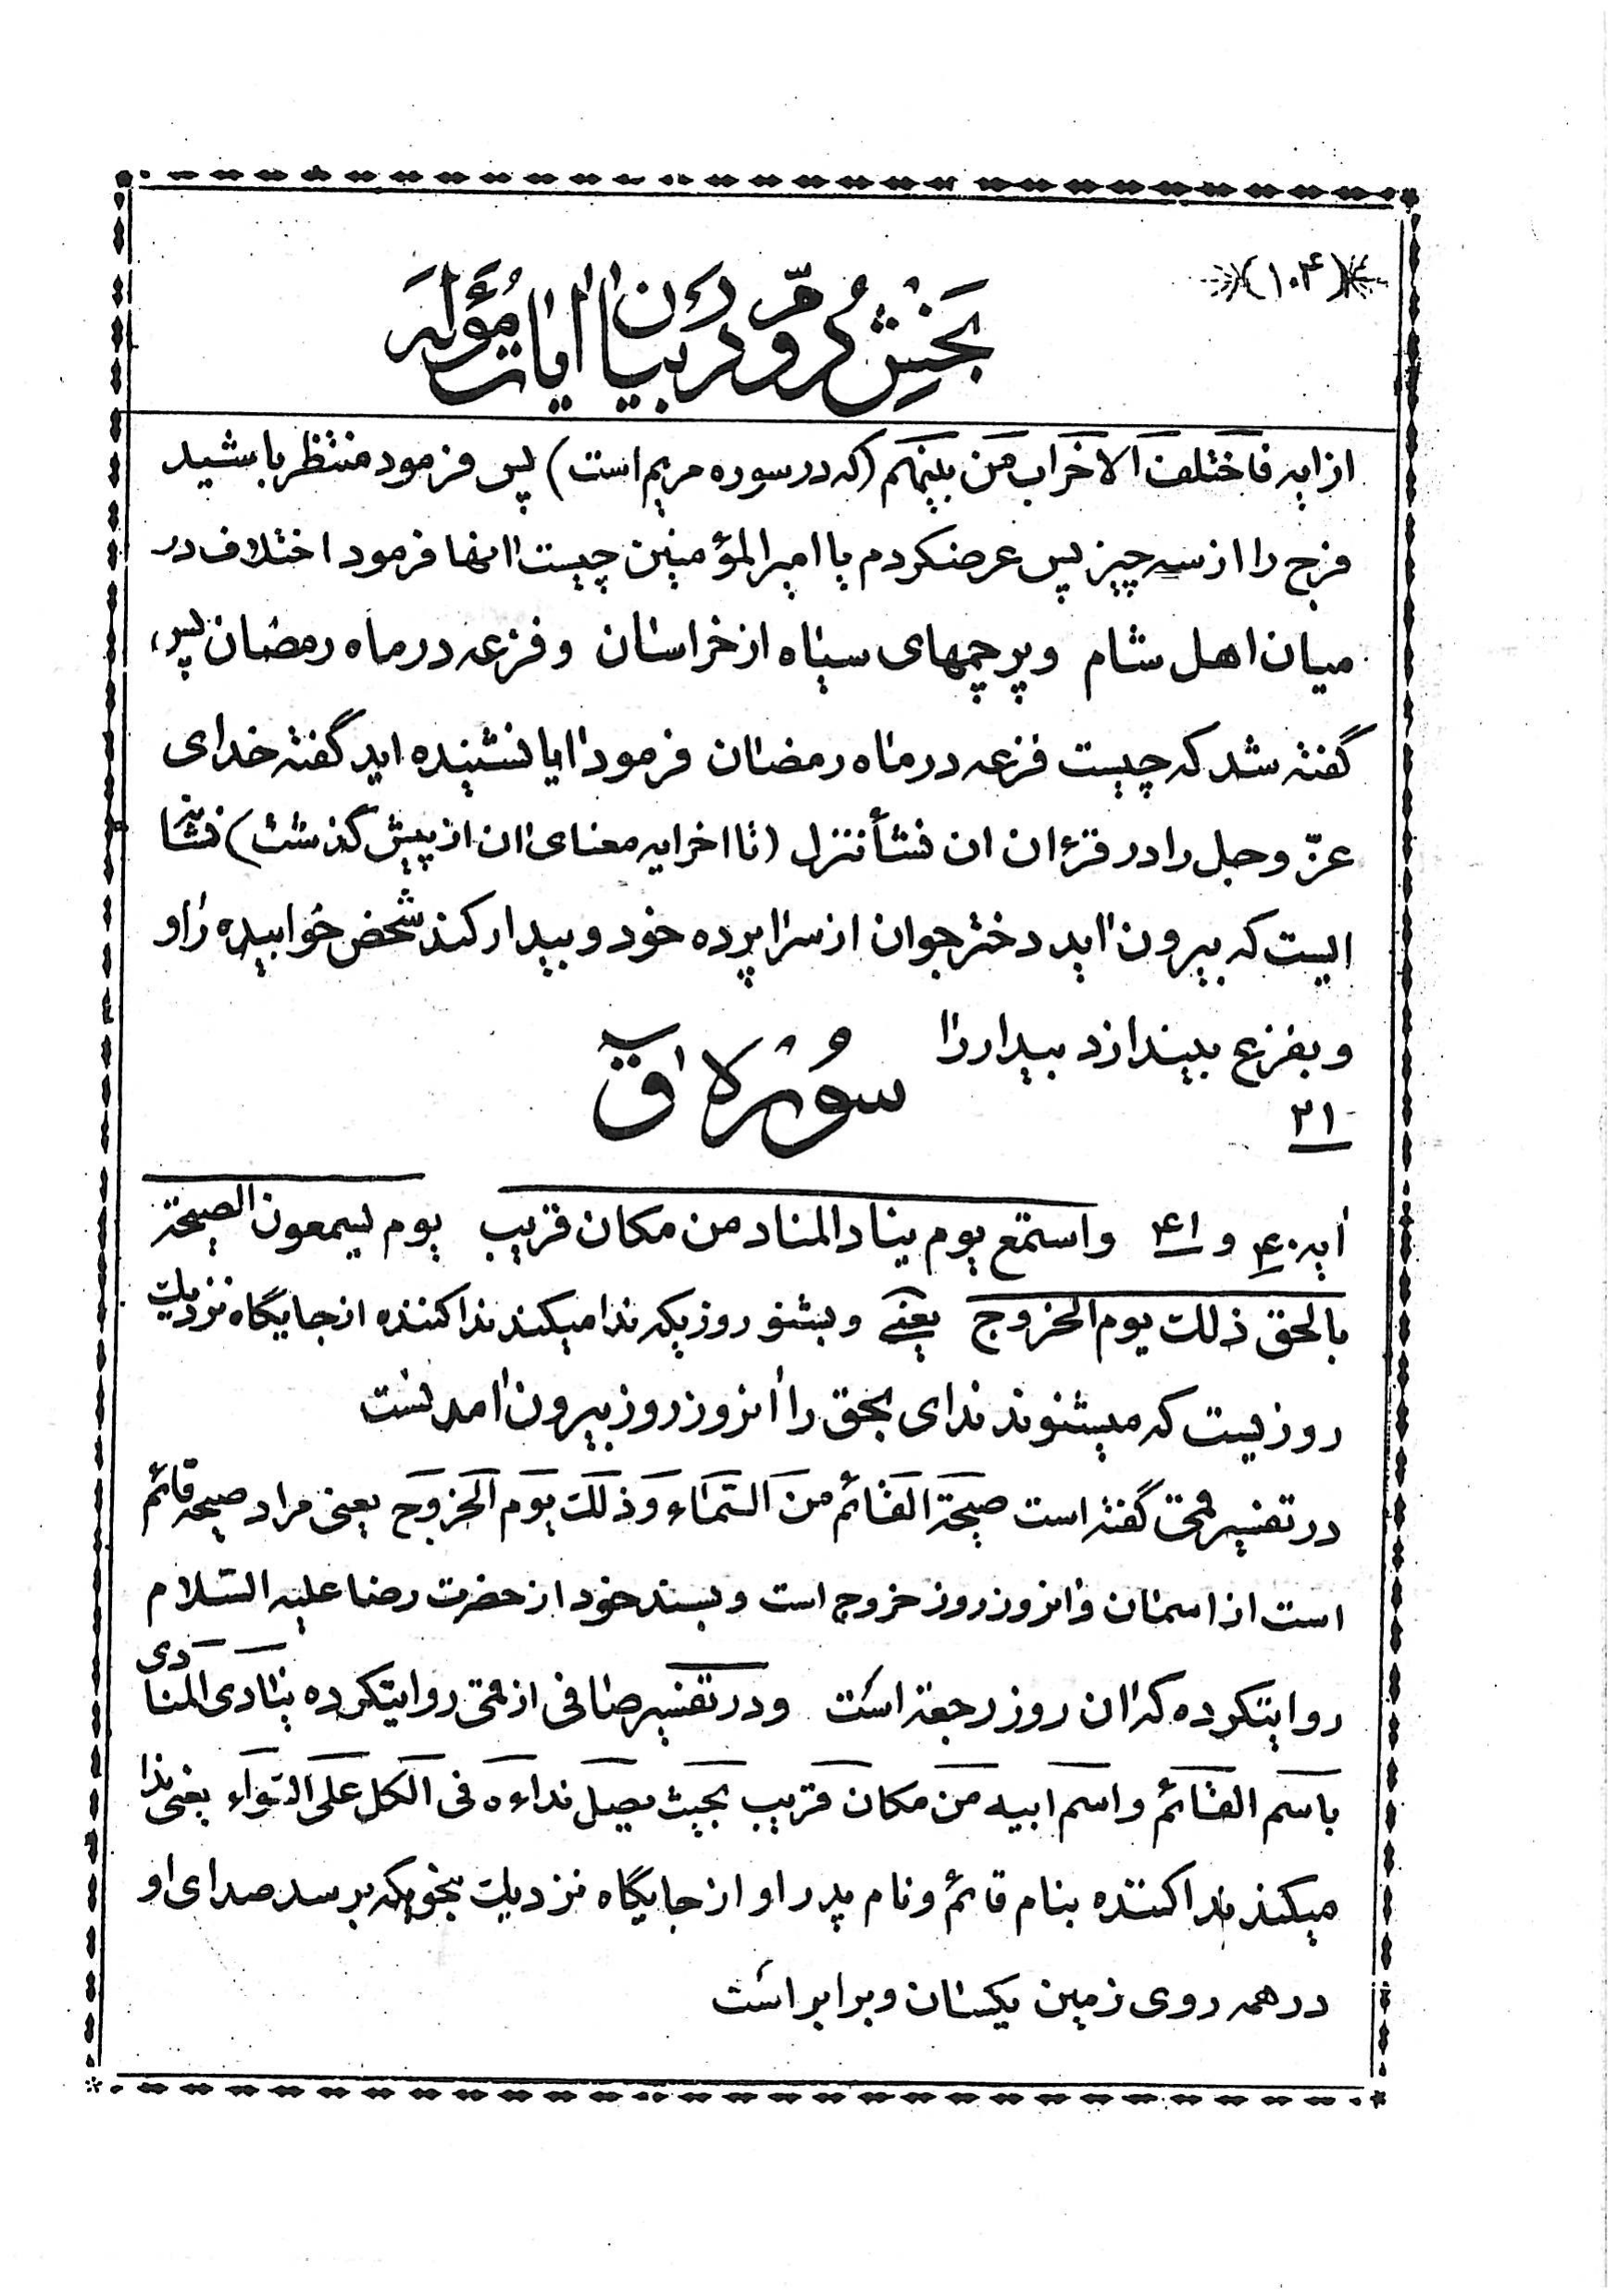 (۱۰۴)
بخش دوم در بیان آیات مؤوله
از ایه فاختلف الاخراب من بینهم (که در سوره مریم است) پس فرمود منتظر باشید
فرج را از سه چیز پس عرضکردم یا امیر المؤمنین چیست انها فرمود اختلاف در
میان اهل شام و پرچمهای سیاه از خراسان و فزعه در ماه رمضان پس
گفته شد که چیست فزعه در ماه رمضان فرمود ایا نشنیده اید گفته خدای
عزّ و جل را در قرءان ان نشأ ننزل (تا اخر ایه معنای ان از پیش گذشت) نشانه
ایست که بیرون اید دختر جوان از سراپرده خود و بیدار کند شخص خوابیده را و
و بفزع بیندازد بیدار را
سُوره ق
۲۱
ایه ۴۰ و ۴۱ واستمع یوم یناد المناد من مکان قریب یوم یسمعون الصیحة
بالحق ذلك یوم الخروج یعنی و بشنو روزیکه ندا میکند ندا کننده از جایگاه نزدیك
روزیست که میشنوند ندای بحق را انروز روز بیرون امدنست
در تفسیر قمی گفته است صیحة القائم من السماء و ذلك یوم الخروج یعنی مراد صیحه قائم
است از اسمان و انروز روز خروج است و بسند خود از حضرت رضا علیه السّلام
روایتکرده که ان روز رجعة است و در تفسیر صافی از قمی روایتکرده ینادی المنادی
باسم القائم و اسم ابیه من مکان قریب بحیث یصل نداءه فی الکل علی السّواء یعنی ندا
میکند ندا کننده بنام قائم و نام پدر او از جایگاه نزدیك بنحویکه برسد صدای او
در همه روی زمین یکسان و برابر است